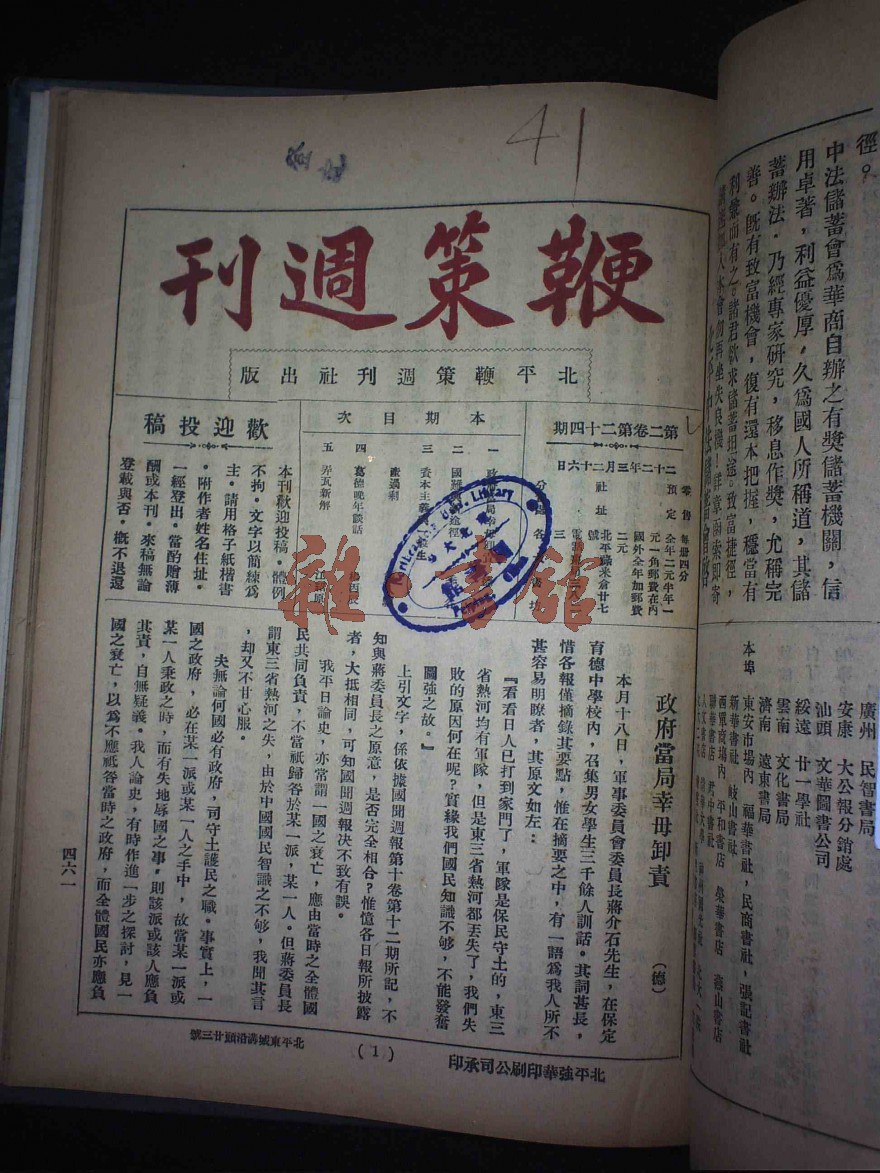 41
鞭策週刊
北平鞭策週刊社出版
第二卷第二十四期
二十二年三月二十六日
零售 每册四分
預定 全年二元半年一
元一角郵費在內
國外全年加郵費
二元
社址 北平祿米倉廿七
號
本期目次
一
二
三 資本主義
產過剩
四 葛德晚年談話
五 弄瓦新解
歡迎投稿
本刊歡迎投稿。體例
不拘。文字以簡練爲
主。請用格子紙楷書
。附作者姓名住址。
一經登出。當酌贈薄
酬或本刊。來稿無論
登載與否。概不退還
政府當局幸毋卸責
(德)
本月十八日，軍事委員會委員長蔣介石先生，在保定
育德中學校內，召集男女學生三千餘人訓話。其詞甚長，
惜各報僅摘錄其要點，惟在摘要之中，有一語爲我人所不
甚容易明瞭者，其原文如左：
『看看日人已打到家門了，軍隊是保民守土的，東三
省熱河均有軍隊，但是東三省熱河都丟失了，我們失
敗的原因何在呢？實緣我們國民知識不够，不能發奮
圖強之故。』
上引文字，係依據國聞週報第十卷第十二期所記，不
知與蔣委員長之原意，是否完全相合？惟憶各日報所披露
者，大抵相同，可知國聞週報決不致有誤。
我平日論史，亦常謂一國之衰亡，應由當時之全體國
民共同負責，不當祇歸咎於某一派，某一人。但蔣委員長
謂東三省熱河之失，由於中國國民智識之不够，我聞其言
，却又不甘心服。
夫無論何國必有政府，司守土護民之職。事實上，一
國之政府，必在某一派或某一人之手中，故當某一派或
某一人秉政之時，而有失地辱國之事，則該派或該人應負
其責，自無疑義。我人論史，有時作進一步之探討，見一
國之衰亡，以爲不應祗咎當時之政府，而全體國民亦應負
四六一
(1)
北平東城溝沿頭廿三號
北平強華印刷公司承印
徑。
中法儲蓄會爲華商自辦之有獎儲蓄機關，信
用卓著，利益優厚，久爲國人所稱道，其儲
蓄辦法，乃經專家研究，移息作獎，允稱完
善。既有致富機會，復有還本把握，穩當有
利兼而有之。諸君欲求儲蓄坦途，致富捷徑，
廣州 民智書局
安康 大公報分銷處
汕頭 文華圖書公司
綏遠 廿一學社
雲南 文化書局
濟南 遠東書局
本埠
東安市場內 福華書社，民商書社，張記書社
新華書社 岐山書社
西單商場內 平和書店 榮華書店
雜·書館